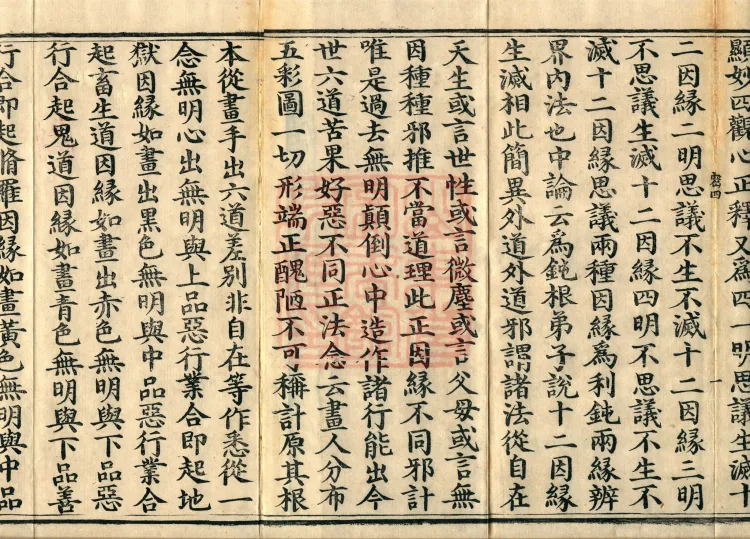 顯如四觀心正釋又爲四一明思議生滅十
二因緣二明思議不生不滅十二因緣三明
不思議生滅十二因緣四明不思議不生不
滅十二因緣思議兩種因緣爲利鈍兩緣辨
界内法也中論云爲鈍根弟子說十二因緣
生滅相此簡異外道外道邪謂諸法從自在
天生或言世性或言微塵或言父母或言無
因種種邪推不當道理此正因緣不同邪計
唯是過去無明顛倒心中造作諸行能出今
世六道苦果好惡不同正法念云畫人分布
五彩圖一切形端正醜陋不可稱計原其根
本從畫手出六道差别非自在等作悉從一
念無明心出無明與上品惡行業合即起地
獄因緣如畫出黑色無明與中品惡行業合
起畜生道因緣如畫出赤色無明與下品惡
行合起鬼道因緣如畫青色無明與下品善
行合即起脩羅因緣如畫黃色無明與中品